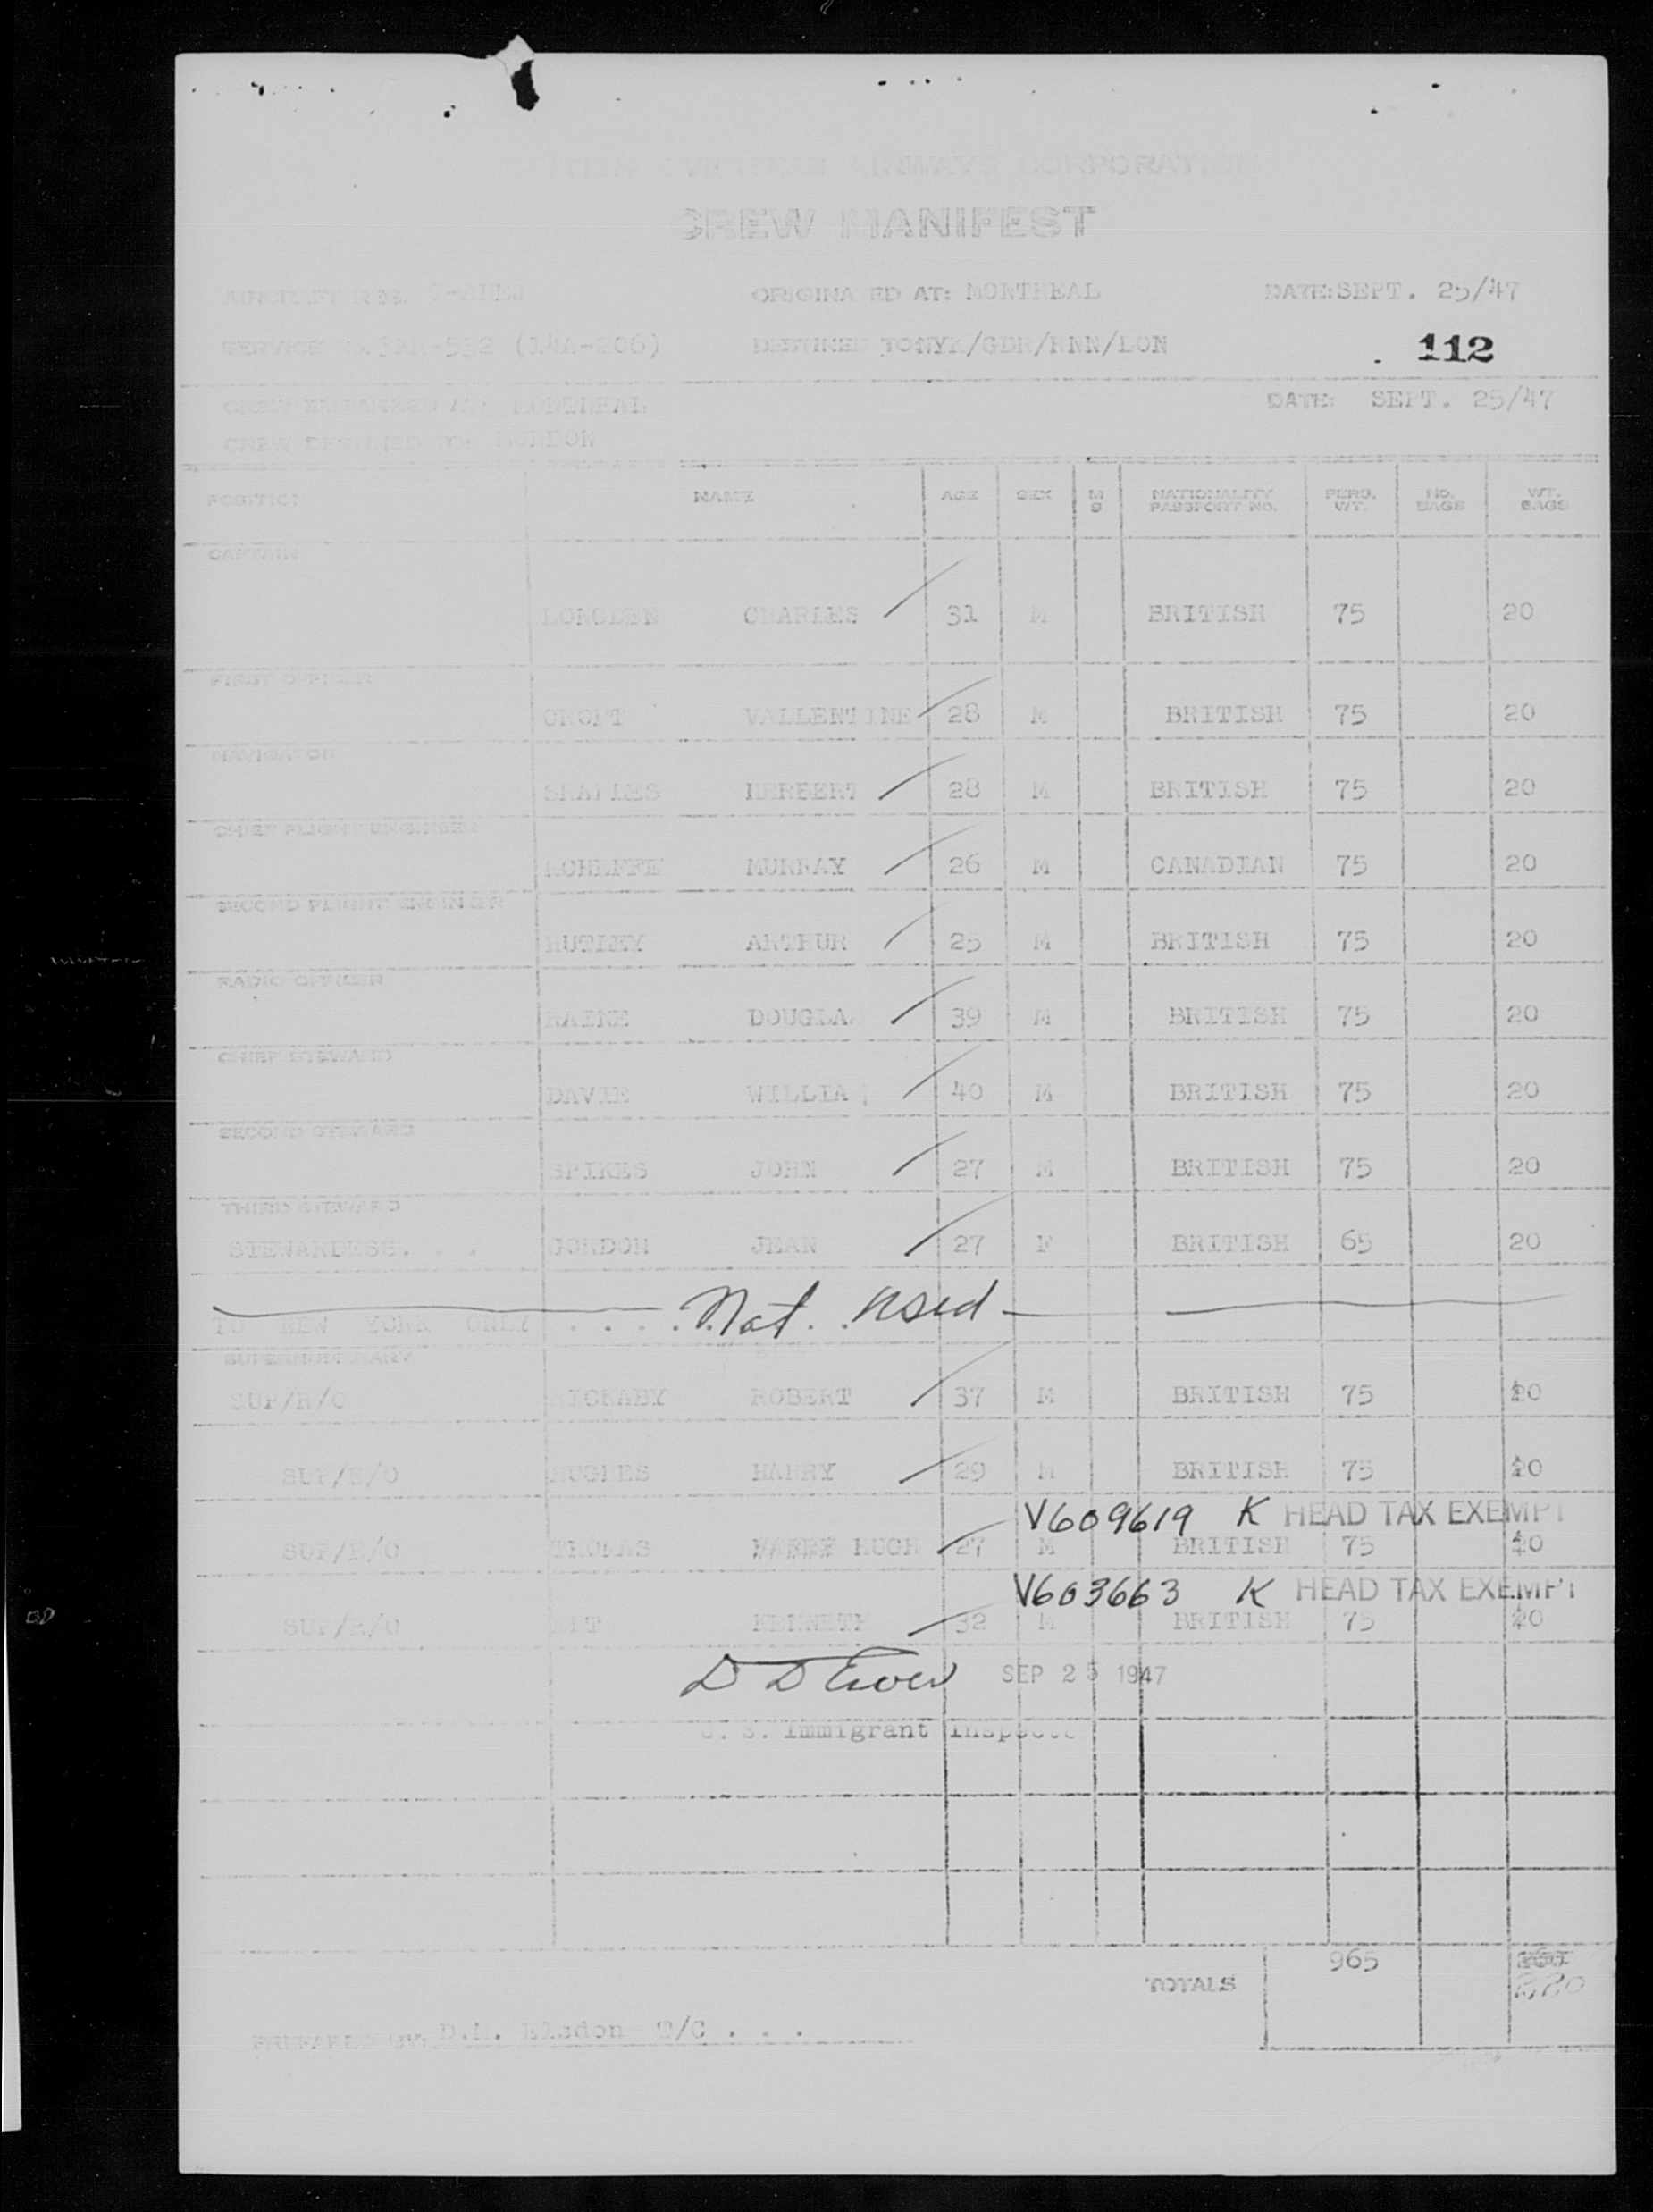 OVERSEAS AIRWAYS CORPORATION
CREW MANIFEST
AIRCRAFT REG. ORIGINATED AT: MONTREAL DATE: SEPT. 25/47
SERVICE NO. -532 (14A-206) DESTINED TO NYK/GDR/NNN/LON . 112
CREW EMBARKED AT: MONTREAL DATE: SEPT. 25/47
CREW DESTINED TO: LONDON
POSITION NAME AGE SEX M S NATIONALITY PASSPORT NO. PERS. WT. NO. BAGS WT. BAGS
CAPTAIN
LONGDEN CHARLES 31 M BRITISH 75 20
FIRST OFFICER
CROFT VALLENTINE 28 M BRITISH 75 20
NAVIGATOR
HERBERT 28 M BRITISH 75 20
CHIEF FLIGHT ENGINEER
MURRAY 26 M CANADIAN 75 20
SECOND FLIGHT ENGINEER
ARTHUR 25 M BRITISH 75 20
RADIO OFFICER
RAINE DOUGLA 39 M BRITISH 75 20
CHIEF STEWARD
DAVIE WILLIA 40 M BRITISH 75 20
SECOND STEWARD
SPIKES JOHN 27 M BRITISH 75 20
THIRD STEWARD
STEWARDESS. . . GORDON JEAN 27 F BRITISH 65 20
TO NEW YORK ONLY . . . . . Not Used
SUPERNUMERARY
SUP/R/O BICKABY ROBERT 37 M BRITISH 75 20
HUGHES HARRY 29 M BRITISH 75 20
V609619 K HEAD TAX EXEMPT
THOMAS HUGH 27 M BRITISH 75 20
V603663 K HEAD TAX EXEMPT
SUP/R/O KENNETH 32 M BRITISH 75 20
D D Ewer SEP 25 1947
U. S. Immigrant Inspector
TOTALS 965 220
PREPARED BY. D.M. Elsdon T/C . . .